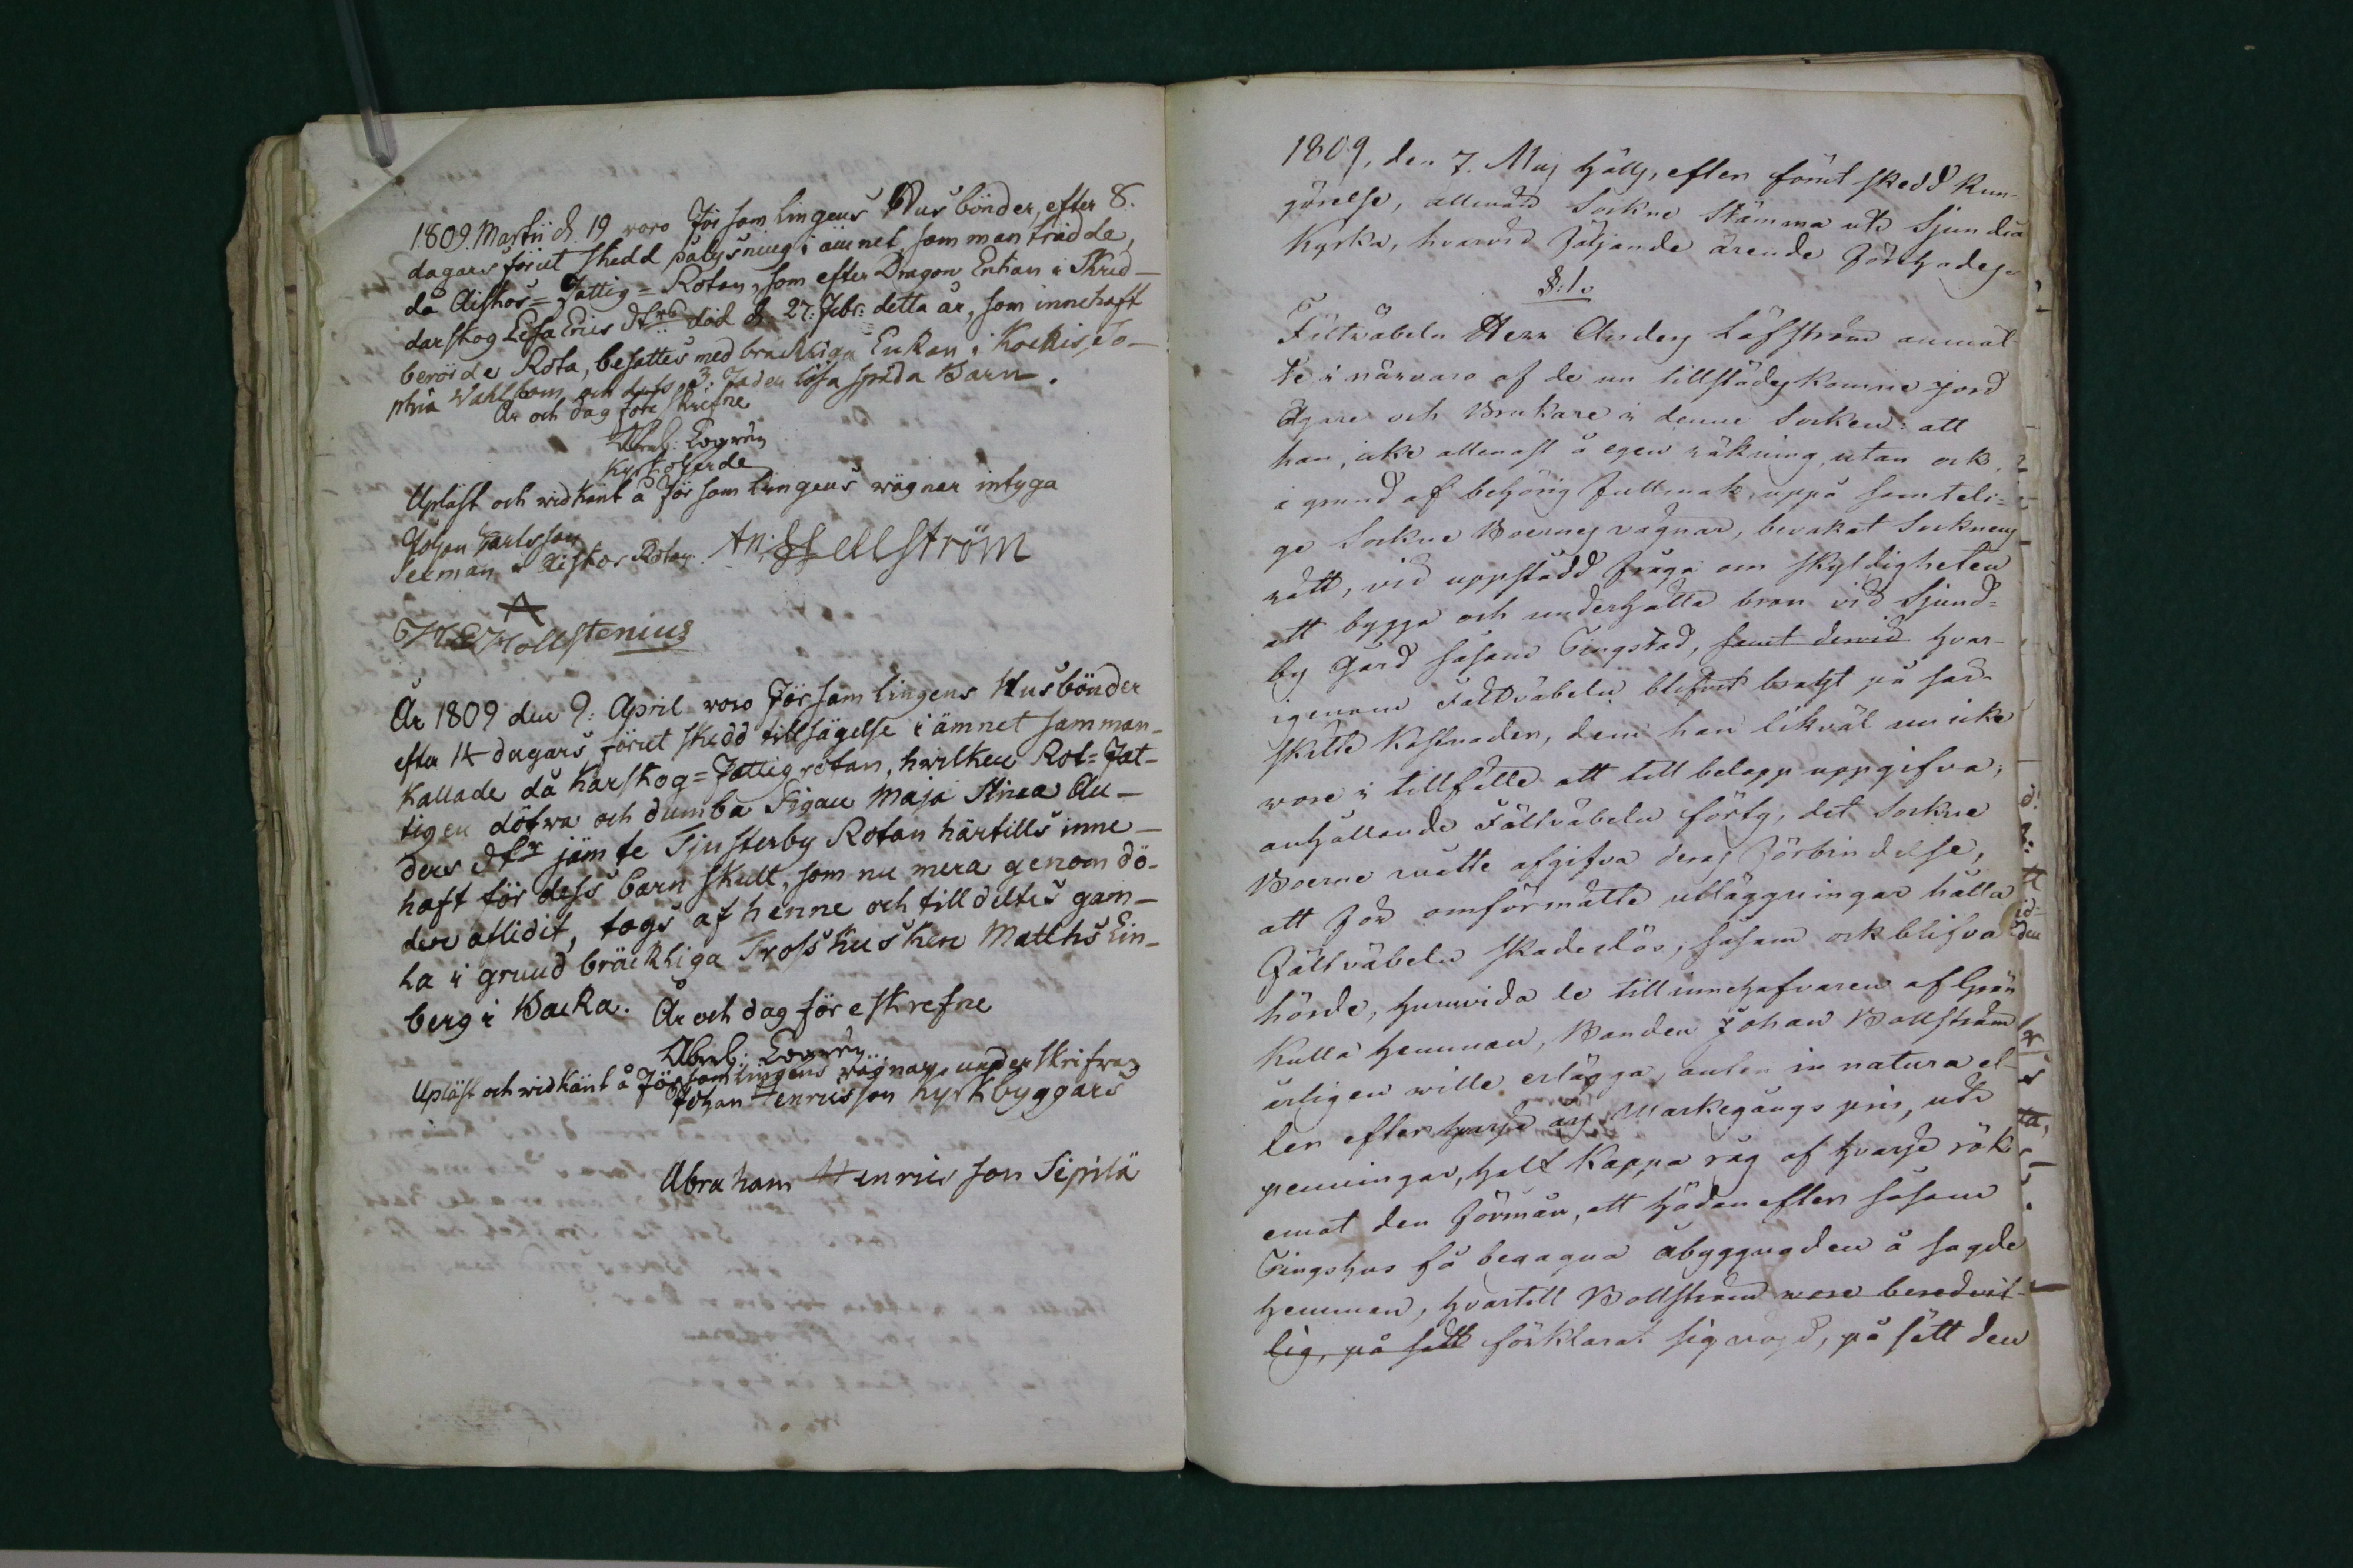 1809. Martii d. 19 woro Församlingens Husbönder, efter 8.
dagars förut skedd pålysning i ämnet, sammanträdde,
då Aiskos=Fattig=Rotan, som efter Dragon Enkan i Skrud-
darskog Lisa Erics dotters död d. 27. Febr: detta år, som innehaft
berörde Rota, besattes med bräckliga Enkan i Kockis, So-
phia Wahlbom, och dess 3: Fader lösa späda Barn.
År och dag före skrefne
Abrah: Logrén
Kyrkoherde
Upläst och widkänt å Församlingens wägnar intyga
Johan Carlsson
Sexman i Aiskos Rotan. An: Hellström
Hollstenius
År 1809 den 9: April woro Församlingens Husbönder
efter 14 dagars förut skedd tillsägelse i ämnet samman-
kallade då Karskog=Fattigrotan, hwilken Rot=Fat-
tigen döfwa och dumba Pigan Maja Stina An-
ders dtr jämte Tjusterby Rotan härtills inne-
haft för dess barn skull, som nu mera genom dö-
den aflidit, togs af henne och tilldeltes gam-
la i grund bräckliga Trosskusken Matths Lin-
berg i Backa. År och dag föreskrefne
Abrah: Logrén
Upläst och widkänt å Församlingens wägnar underskrifwa
Johan Henricsson Kyrkbyggars
Abraham Henricsson Sipilä
1809, den 7. Maj hölls, efter förut skedd kun-
görelse, allmän Sockne Stämma uti Sjundeå
Kyrka, hwarvid följande ärende förehades
§:1.
Fältväbeln Herr Anders Löfström anmäl-
te i närvaro af de nu tillstädeskomne jord
Ägare och Brukare i denne Socken: att
han, icke allenast å egen räkning, utan ock
i grund af behörig fullmakt, uppå samteli-
ge Sockne Boernes vägnar, bevakat Socknens
rätt, vid uppstådd fråga om skyldigheten
att bygga och underhålla bron vid Sjund-
by Gård såsom Tingstad, samt dervid hvar-
igenom Fältväbeln blifvit bragt på sär-
skilte kostnader, dem han likväl nu icke
wore i tillfälle att till belopp uppgifva;
anhållande Fältväbeln förty, det Sockne
Boerne måtte afgifva deras förbindelse,
att för omförmälte utläggningar hålla
Fältväbeln skadeslös, såsom ock blifva
hörde, huruvida de till innehafvaren af Grän
kulla hemman, Bonden Johan Bollström
årligen wille erlägga, anten in natura el-
ler efter hvarje års Markegångs pris, uti
penningar, half Kappa råg af hvarje rök
emot den förmån, att hädanefter såsom
Tingshus få begagna åbyggnaden å sagde
hemman, hvartill Bollström wore beredvil-
lig, på sätt förklarat sig nöjd, på sätt den